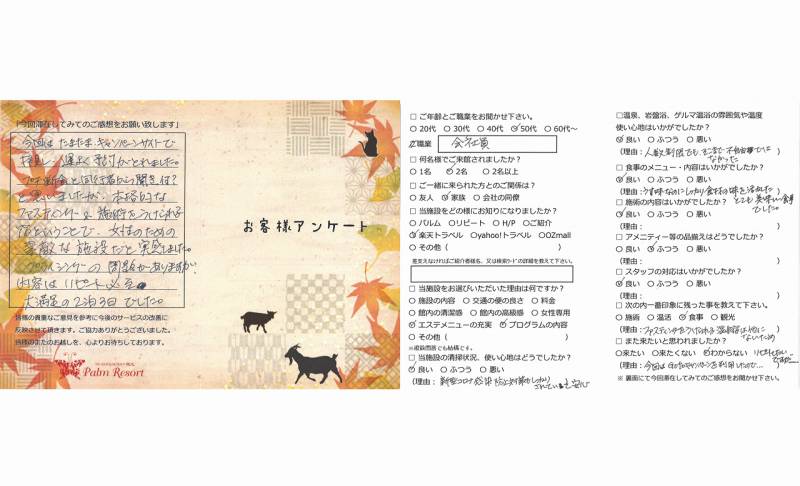 「今回滞在してみてのご感想をお願い致します」
今回は たまたま、キャンペーンサイトで
検索し、運よく予約がとれました。
プチ断食と同行者から聞き、は?
と思いましたが、本格的な
ファスティング&施術をうけられる
宿ということで、女性のための
素敵な施設だと実感しました。
内容はリピート必至。
大満足の2泊3日でした。
皆様の貴重なご意見を参考に今後のサービスの改善に
反映させて頂きます。ご協力ありがとうございました。
皆様のまたのお越しを、心よりお待ちしております。
Palm Resort
お客様アンケート
□ ご年齢とご職業をお聞かせ下さい。
○ 20代 ○ 30代 ○ 40代 ○ 50代 ○ 60代~
職業 会社員
□ 何名様でご来館されましたか?
○ 1名 ○ 2名 ○ 2名以上
□ ご一緒に来られた方とのご関係は?
○ 友人 ○ 家族 ○ 会社の同僚
□ 当施設をどの様にお知りになりましたか?
○ パルム ○ リピート ○ H/P ○ご紹介
○ 楽天トラベル ○yahoo!トラベル ○OZmall
○ その他 ( )
差支えなければご紹介者様名、又は検索ワードの詳細を教えて下さい。
□ 当施設をお選びいただいた理由は何ですか?
○ 施設の内容 ○ 交通の便の良さ ○ 料金
○ 館内の清潔感 ○ 館内の高級感 ○ 女性専用
○ エステメニューの充実 ○ プログラムの内容
○ その他 ( )
※複数回答でも結構です。
□ 当施設の清掃状況、使い心地はどうでしたか?
○ 良い ○ ふつう ○ 悪い
(理由: 新型コロナ感染防止対策がしっかり
されていて安心
□温泉、岩盤浴、ゲルマ温浴の雰囲気や温度
使い心地はいかがでしたか?
○ 良い ○ ふつう ○ 悪い
(理由: 人数制限でも、そこまで不自由では )
なかった
□ 食事のメニュー・内容はいかがでしたか?
○ 良い ○ ふつう ○ 悪い
(理由: うす味なのにしっかり食材の味を活かした
とても美味しい食事
でした。
□ 施術の内容はいかがでしたか?
○ 良い ○ ふつう ○ 悪い
(理由: )
□ アメニティー等の品揃えはどうでしたか?
○ 良い ○ ふつう ○ 悪い
(理由: )
□ スタッフの対応はいかがでしたか?
○ 良い ○ ふつう ○ 悪い
(理由: )
□ 次の内一番印象に残った事を教えて下さい。
○ 施術 ○ 温活 ○ 食事 ○ 観光
(理由: ファスティングをうたわれる温泉宿は他に )
ないため
□ また来たいと思われましたか?
○来たい ○来たくない ○わからない
(理由: 今回はGoToキャンペーンを利用したので… )
※ 裏面にて今回滞在してみてのご感想をお聞かせ下さい。